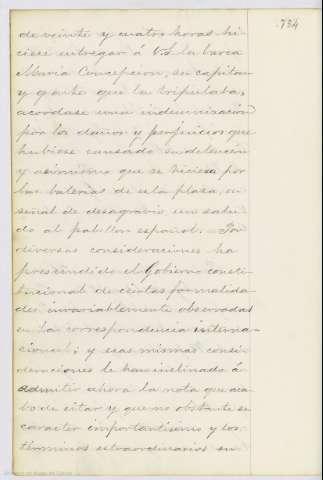 734
de veinte y cuatro horas hi-
ciese entregar á V.S. la barca
Maria Concepcion, su capitan
y gente que la tripulaba,
acordase una indemnizacion
por los daños y perjuicios que
hubiese causado su detencion
y asimismo que se hiciese por
las baterias de esta plaza, en
señal de desagravio un salu-
do al pabellon español. Por
diversas consideraciones ha
prescindido el Gobierno consti-
tucional de ciertas formalida-
des invariablemente observadas
en la correspondencia interna-
cional; y esas mismas consi-
deraciones le han inclinado á
admitir ahora la nota que aca-
bo de citar y que no obstante su
caracter importantisimo y los
terminos estraordinarios en